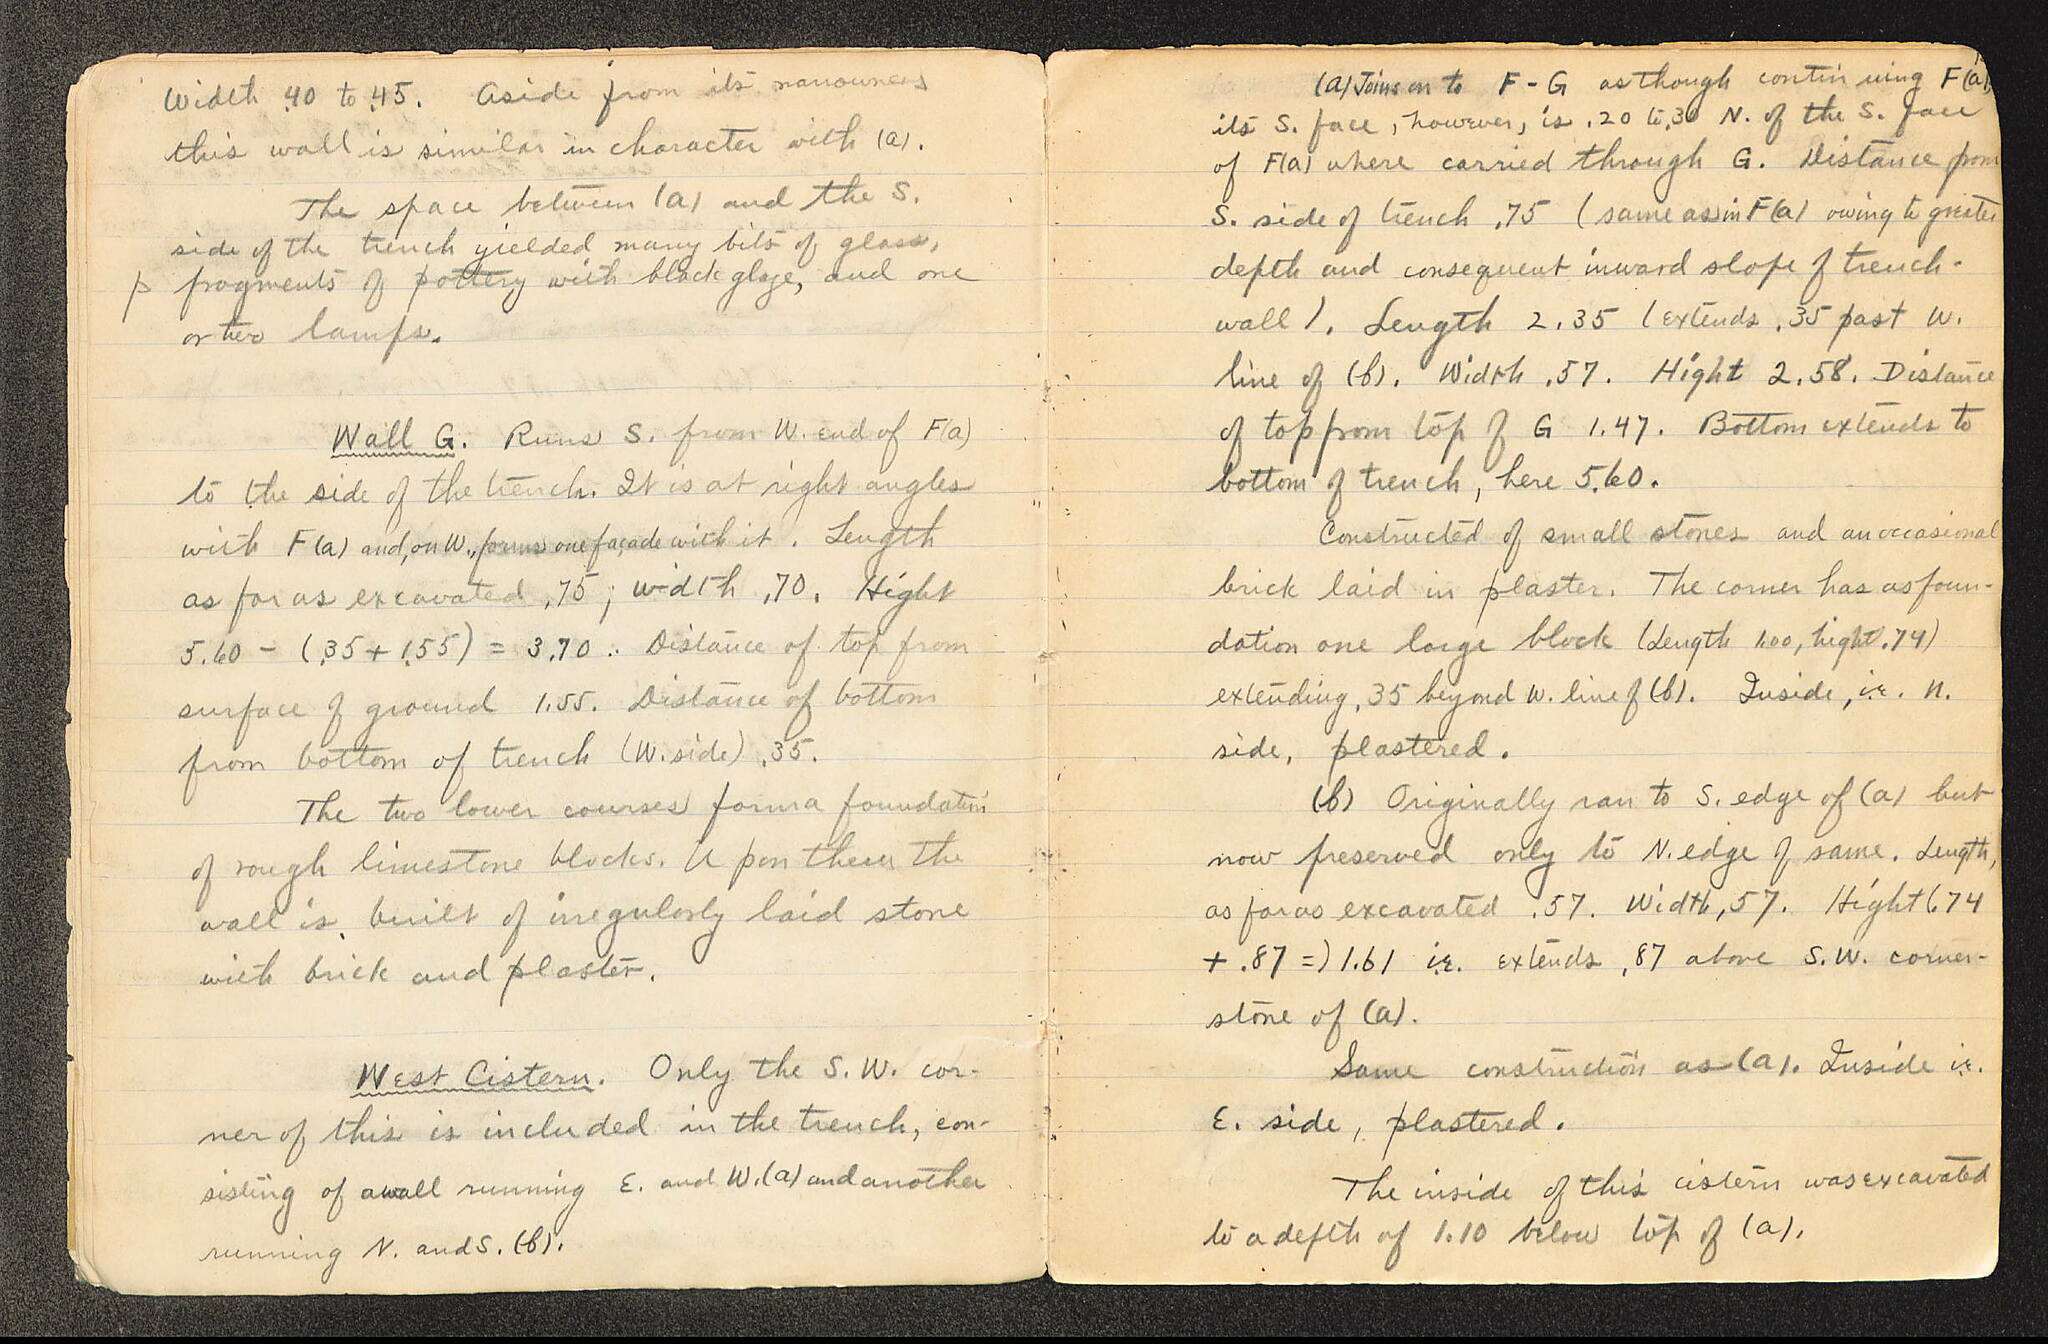 Width .40 to .45. Aside from its narrowness
this wall is similar in character with (a).
The space between (a) and the S.
side of the trench yielded many bits of glass,
p fragments of pottery with black glaze, and one
or two lamps.
Wall G. Runs S. from W. end of F(a)
to the side of the trench. It is at right angles
with F(a) and, on W., forms one façade with it. Length
as far as excavated .75; width .70. Hight
5.60 - (.35 + 1.55) = 3.70. Distance of top from
surface of ground 1.55. Distance of bottom
from bottom of trench (W. side) .35.
The two lower courses form a foundation
of rough limestone blocks. Upon them the
wall is built of irregularly laid stone
with brick and plaster.
West Cistern. Only the S. W. cor-
ner of this is included in the trench, con-
sisting of a wall running E. and W. (a) and another
running N. and S. (b).
(a) Joins on to F - G as though continuing F(a),
its S. face, however, is .20 to .30 N. of the S. face
of F(a) where carried through G. Distance from
S. side of trench .75 (same as in F(a) owing to greater
depth and consequent inward slope of trench-
wall). Length 2.35 (extends .35 past W.
line of (b). Width .57. Hight 2.58. Distance
of top from top of G 1.47. Bottom extends to
bottom of trench, here 5.60.
Constructed of small stones and an occasional
brick laid in plaster. The corner has as foun-
dation one large block (Length 1.00, hight .74)
extending .35 beyond W. line of (b). Inside, i.e. N.
side, plastered.
(b) Originally ran to S. edge of (a) but
now preserved only to N. edge of same. Length,
as far as excavated .57. Width, .57. Hight (.74
+ .87 =) 1.61 i.e. extends .87 above S. W. corner-
stone of (a).
Same construction as (a). Inside i.e.
E. side, plastered.
The inside of this cistern was excavated
to a depth of 1.10 below top of (a).